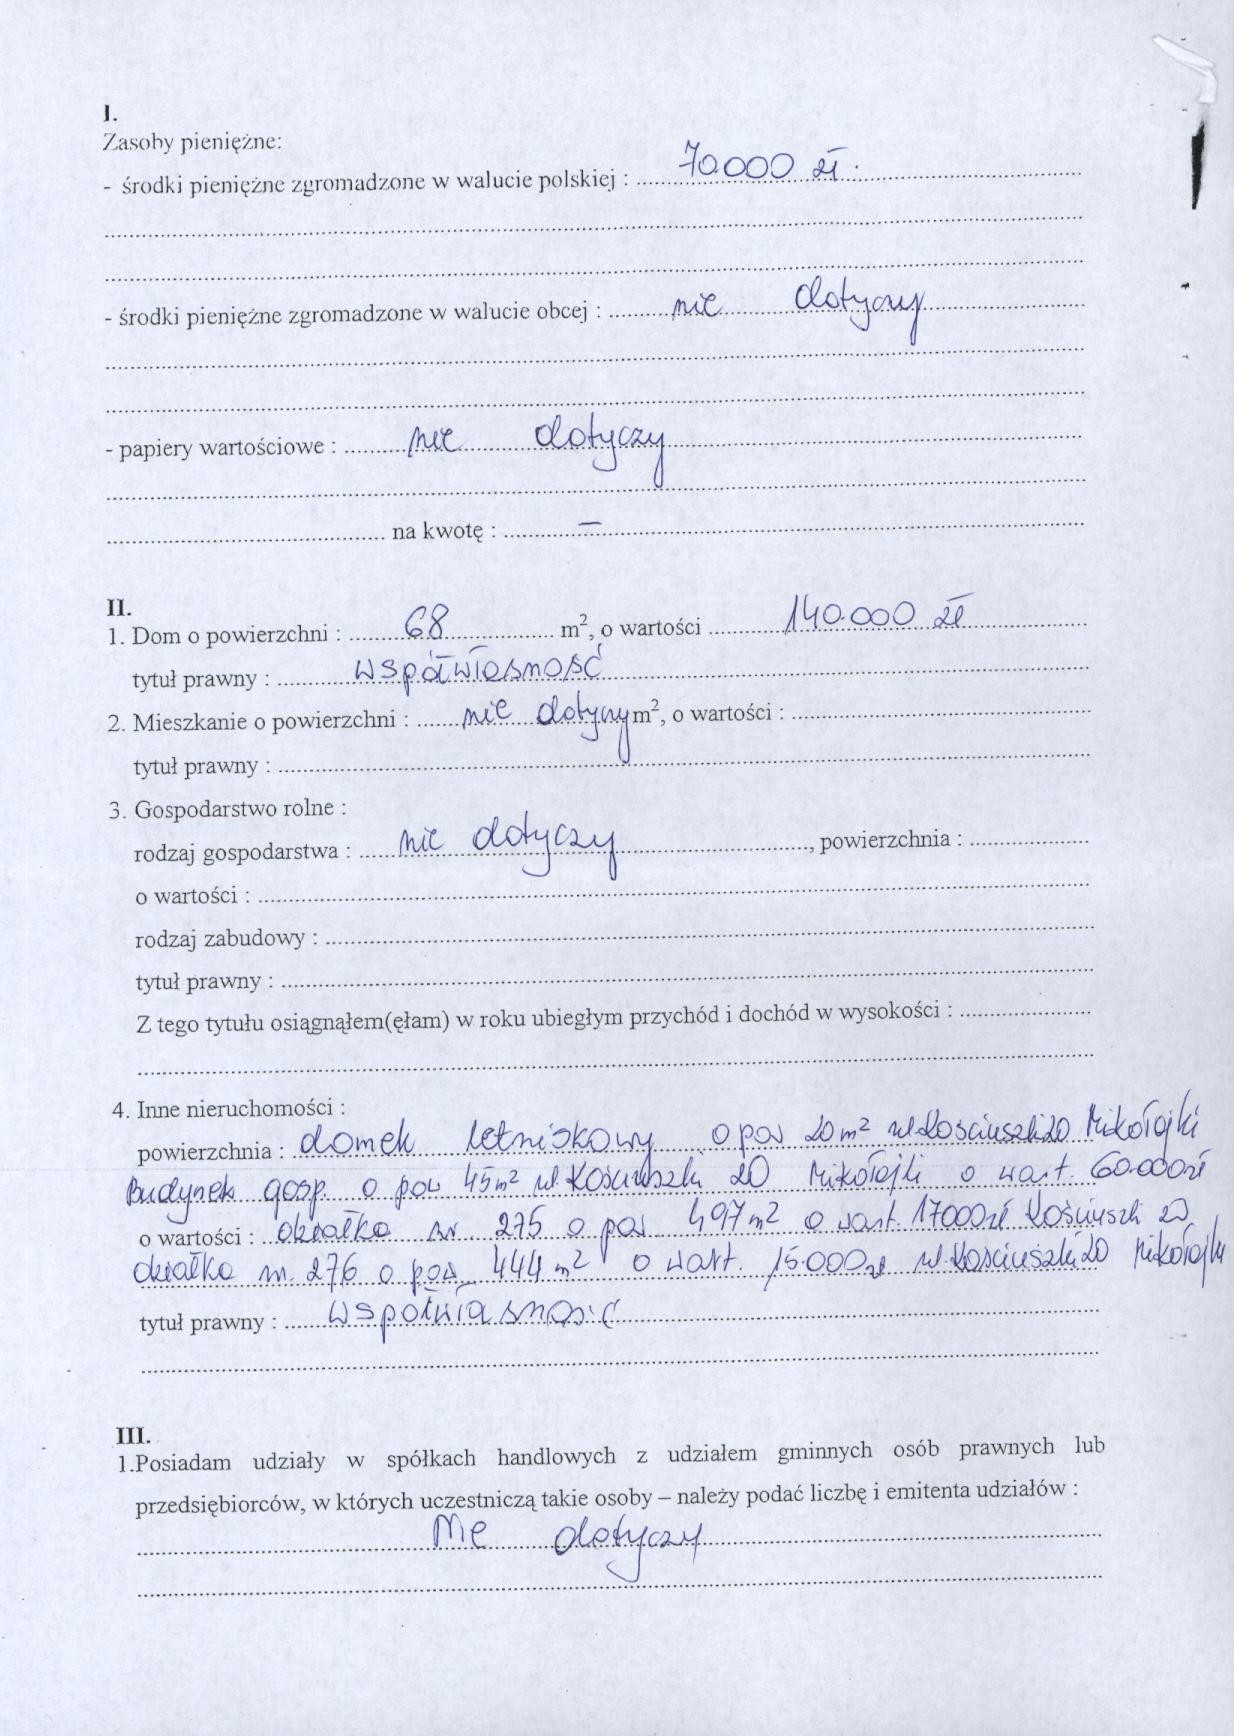 I.
Zasoby pieniężne:
- środki pieniężne zgromadzone w walucie polskiej : 70.000 zł.
- środki pieniężne zgromadzone w walucie obcej : nie dotyczy
- papiery wartościowe : nie dotyczy
na kwotę : —
II.
1. Dom o powierzchni : 68 m², o wartości 140.000 zł
tytuł prawny : współwłasność
2. Mieszkanie o powierzchni : nie dotyczy m², o wartości :
tytuł prawny :
3. Gospodarstwo rolne :
rodzaj gospodarstwa : nie dotyczy, powierzchnia :
o wartości :
rodzaj zabudowy :
tytuł prawny :
Z tego tytułu osiągnąłem(ęłam) w roku ubiegłym przychód i dochód w wysokości :
4. Inne nieruchomości :
powierzchnia : domek letniskowy o pow 20 m² ul. Kościuszki 20 Mikołajki
Budynek gosp. o pow 45 m² ul. Kościuszki 20 Mikołajki o wart. 60.000 zł
o wartości : działka nr. 275 o pow 497 m² o wart. 17000 zł Kościuszki 20
działka nr. 276 o pow 444 m² o wart. 15.000 zł ul. Kościuszki 20 Mikołajki
tytuł prawny : współwłasność
III.
1.Posiadam udziały w spółkach handlowych z udziałem gminnych osób prawnych lub
przedsiębiorców, w których uczestniczą takie osoby – należy podać liczbę i emitenta udziałów :
Nie dotyczy